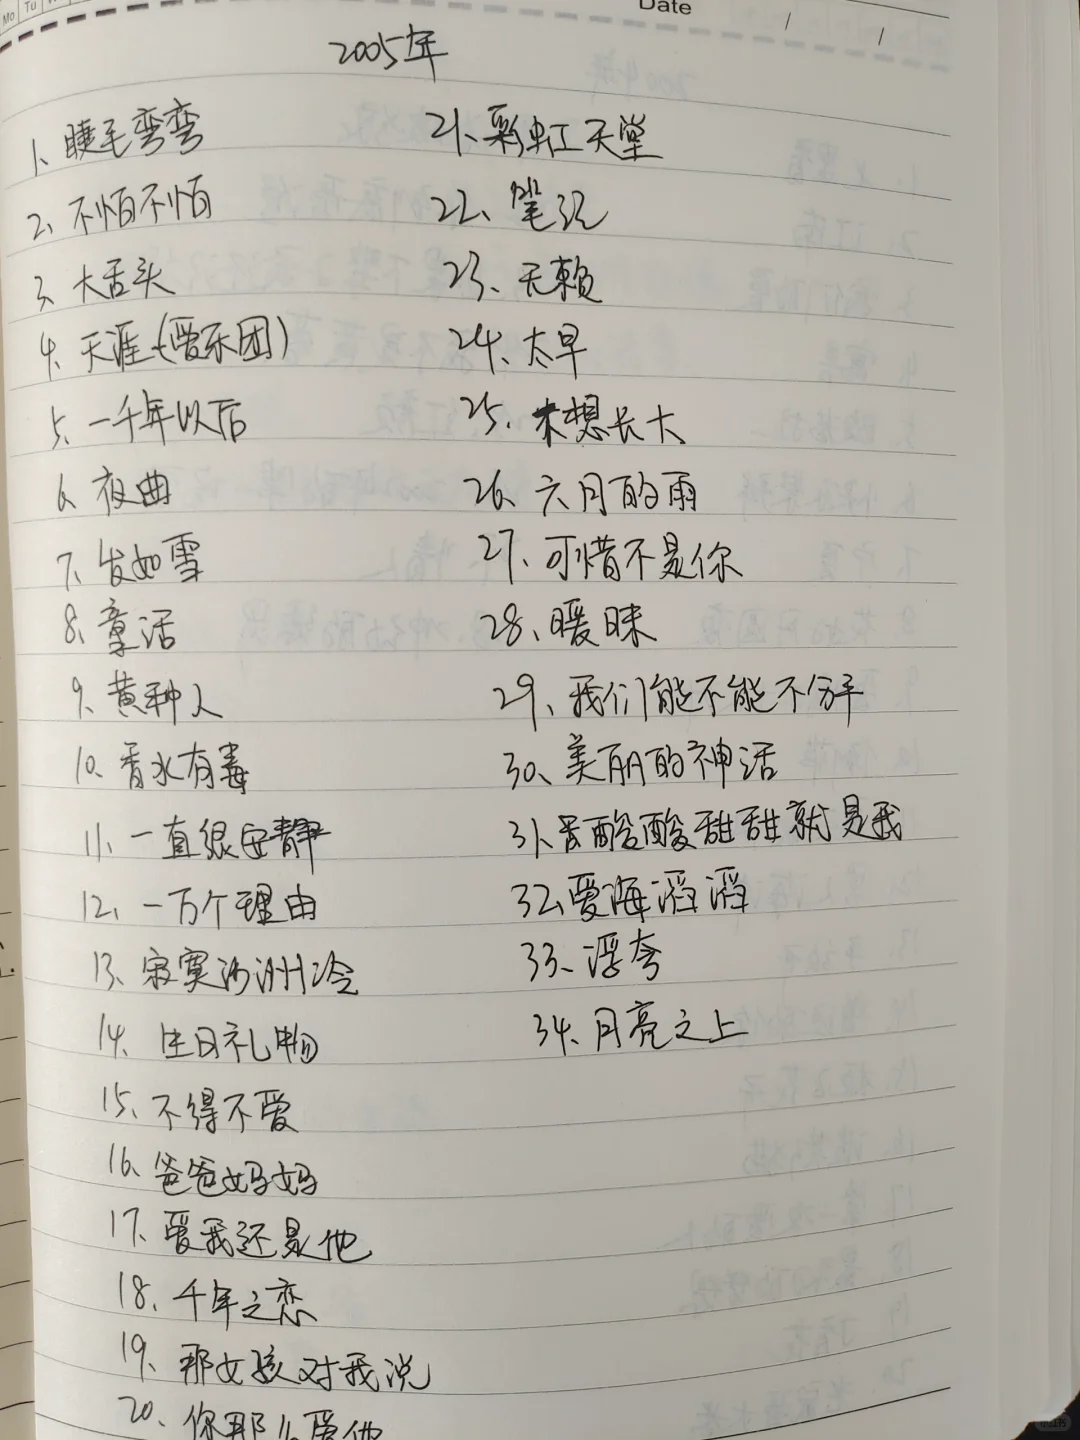 Mo Tu
Date / /
2005年
1、睫毛弯弯
2、不怕不怕
3、大舌头
4、天涯(爱乐团)
5、一千年以后
6、夜曲
7、发如雪
8、童话
9、黄种人
10、香水有毒
11、一直很安静
12、一万个理由
13、寂寞沙洲冷
14、生日礼物
15、不得不爱
16、爸爸妈妈
17、爱我还是他
18、千年之恋
19、那女孩对我说
20、你那么爱他
21、彩虹天堂
22、笔记
23、天赖
24、太早
25、不想长大
26、六月的雨
27、可惜不是你
28、暧昧
29、我们能不能不分手
30、美丽的神话
31、酸酸甜甜就是我
32、爱海滔滔
33、浮夸
34、月亮之上